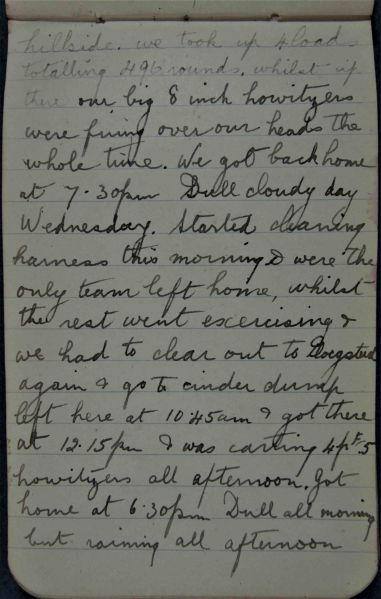 hillside. we took up 4 loads
totalling 496 rounds, whilst up
there our big 8 inch howitzers
were firing over our heads the
whole time. We got back home
at 7.30pm Dull cloudy day
Wednesday. Started cleaning
harness this morning & were the
only team left home, whilst
the rest went exercising &
we had to clear out to
again & go to cinder dump
left here at 10.45am & got there
at 12.15pm & was carting 4 .5
howitzers all afternoon. Got
home at 6.30pm Dull all morning
but raining all afternoon